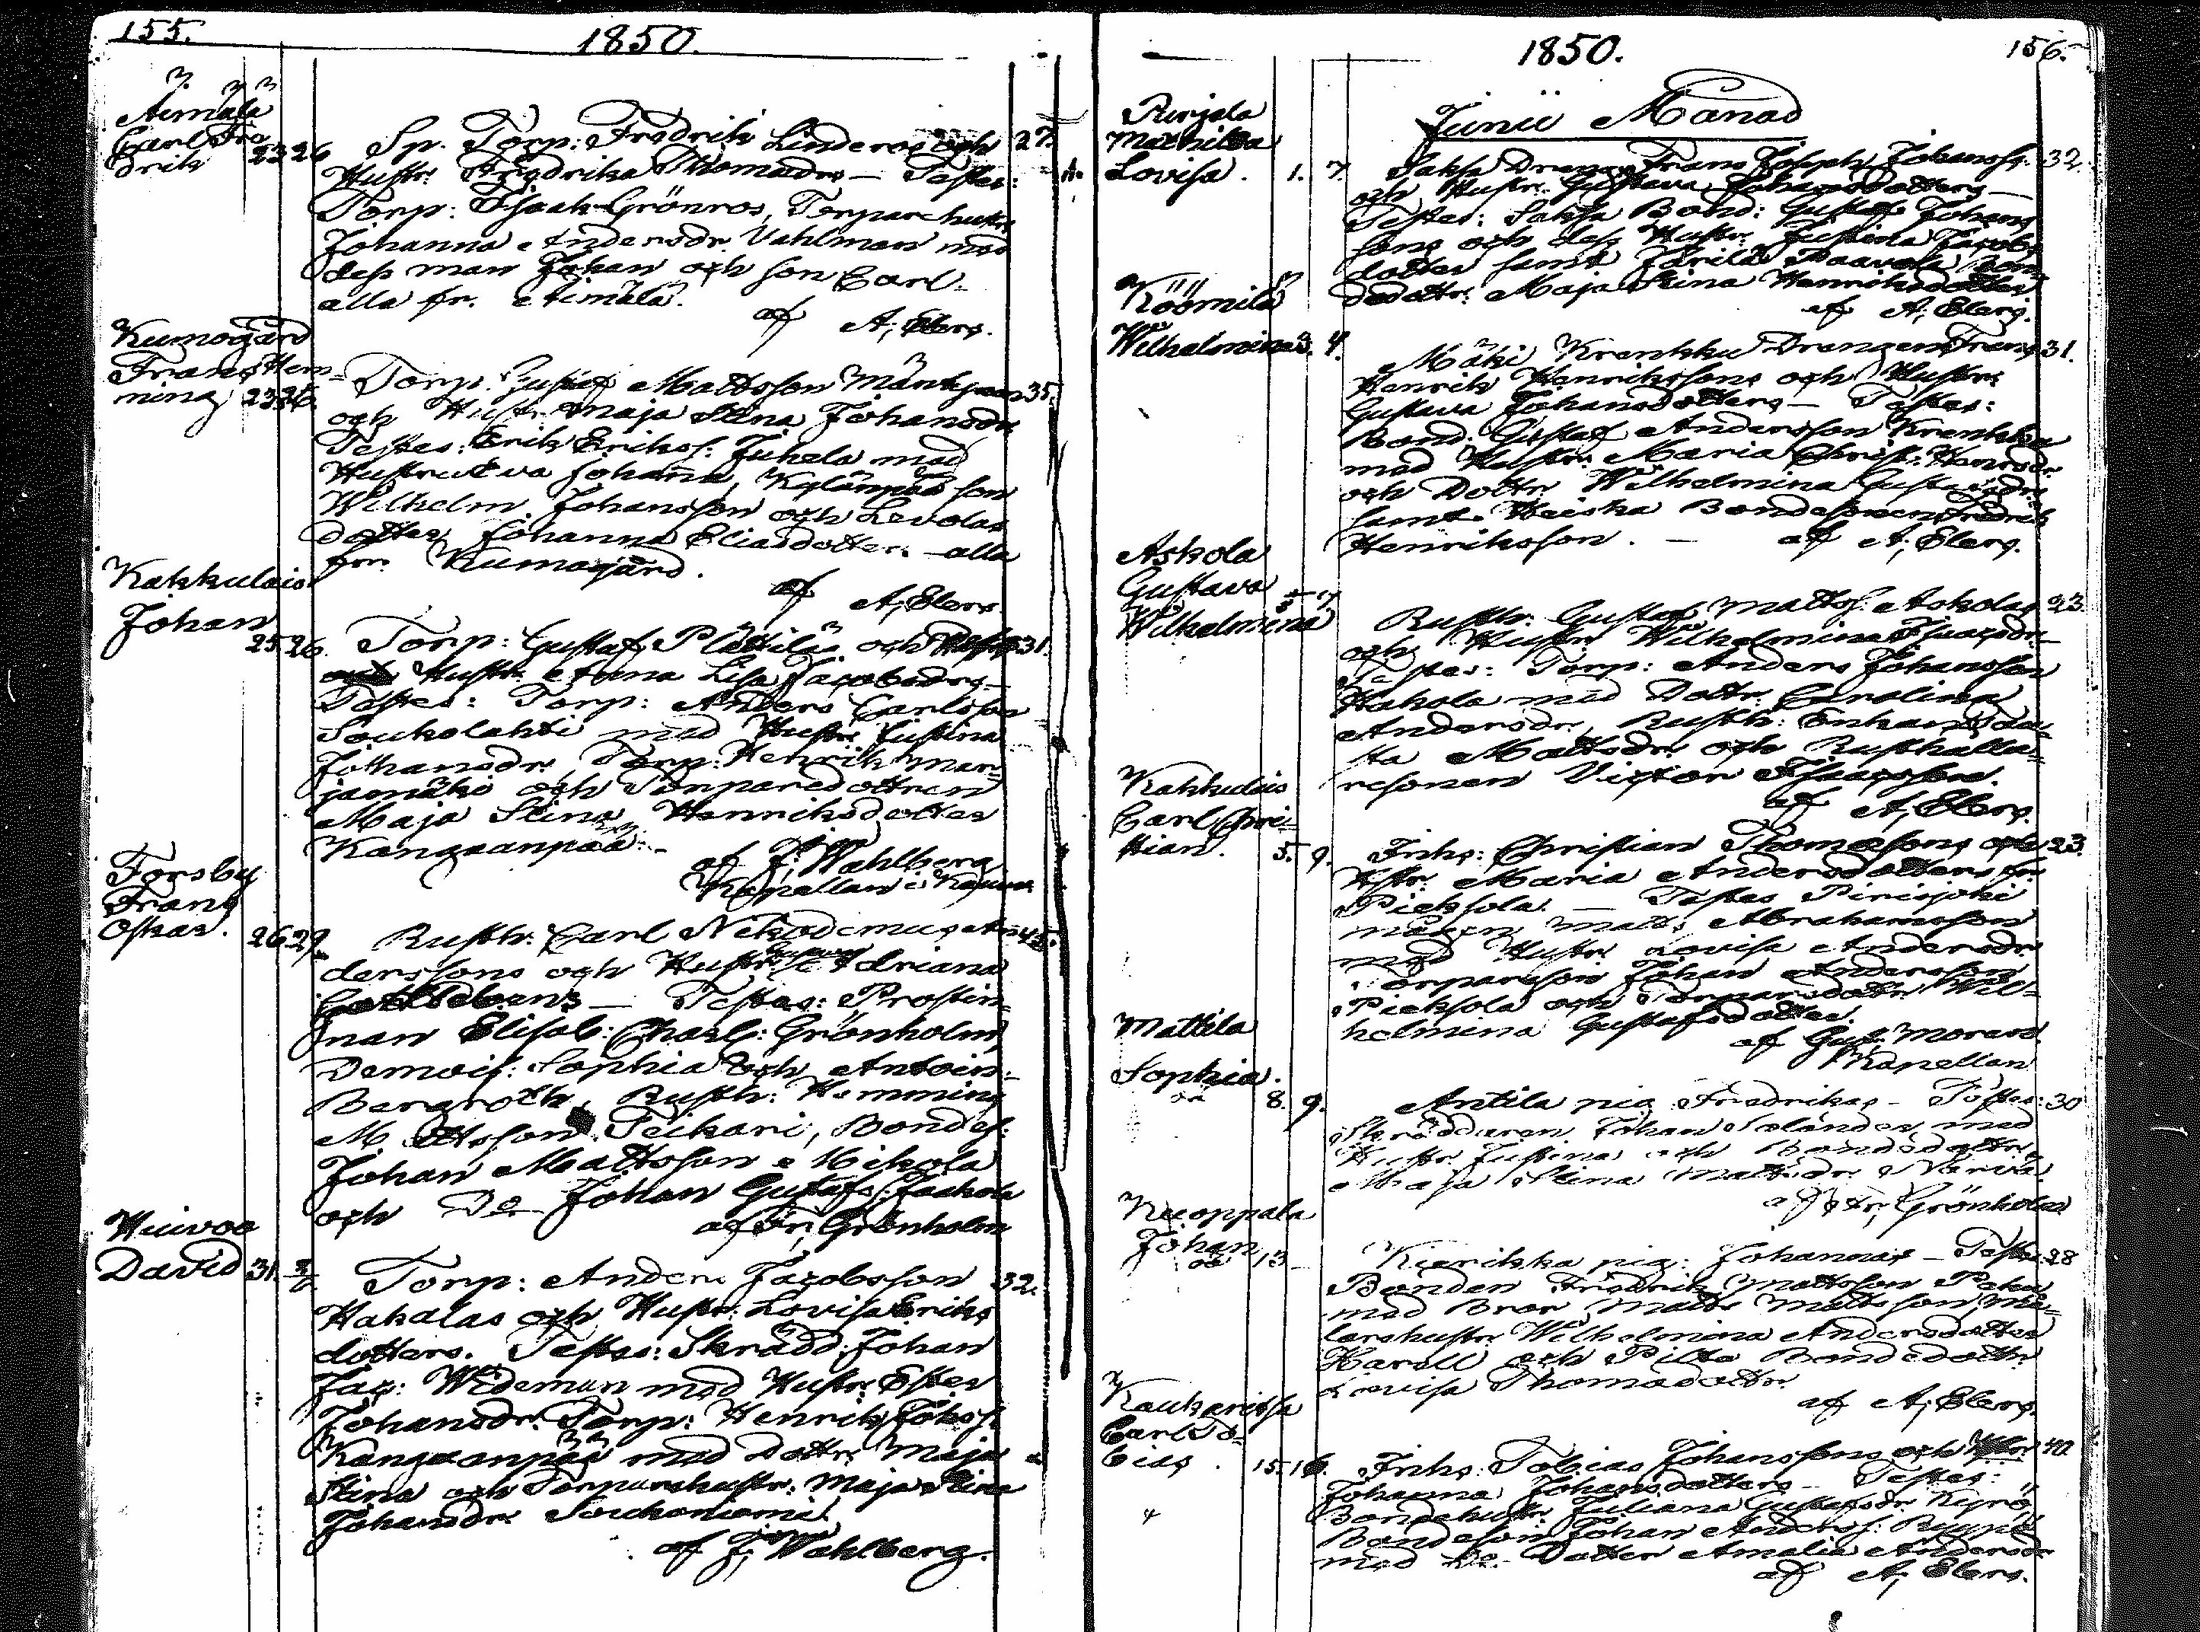 155.
1850.
Aimälä
Carl Fre
drik 23 26
Sp. Torp: Fredrik Linderos och 27.
Hustr. Fredrika Thomædrs — Testes:
Torp: Isaak Grönros, Torpare hustr.
Johanna Andersdr. Vahlman med
dess man Johan och son Carl
alla fr. Aimälä.
af A; Elers.
Kumogård
Frans Hem-
ming 23 26.
Torp. Gustaf Mattsson Mäntysaari 35.
och Hustr. Maja Stina Johansdr.
Testes: Erik Eriks. Juhela med
Hustru Eva Johanna, Kylänpää son
Wilhelm Johansson och Levolas
dotter Johanna Eliasdotter. alla
frn. Kumogård.
af A; Elers.
Kakkulais
Johan
25 26.
Torp: Gustaf Plättiläs och 31.
Hustr. Anna Lisa Jacobsdrs —
Testes: Torp: Anders Carlsson
Soukolahti med Hustr. Justina
Johansdr. Torp: Henrik Mar-
jamäki och Torparedottren
Maja Stina Henriksdotter
Kangaanpää.
af J; Wahlberg
Kapellan i
Forsby
Frans
Oskar. 26 29.
Rusth: Carl Nikodemus An- 42.
derssons och Hustr. Adriana
— Testes: Prostin-
nan Elisab: Charl: Grönholm,
Demois: Sophia och Antoin:
Bergroth, Rusth: Hemming
Mattsson Teikari, Bondes:
Johan Mattsson Mikola
och Do Johan Gustafs: Jaakola
af Fr; Grönholm
Wiuvoa
David 31. 2/6
Torp: Anders Jacobsson 32.
Hakalas och Hustr: Lovisa Eriks
dotters. Testes: Skrädd: Johan
Jac: Wideman med Hustr. Ester
Johansdr. Torp: Henrik Johs:
Kangaanpää med Dottr. Maja
Stina och Torparehustr: Maja Stina
Johansdr. Soukoniemi
af J; Wahlberg.
1850.
156.
Junii Månad
Purjala
Mathilda
Lovisa. 1. 7.
Saksa Drengs Frans Joseph Johanss: 32.
och Hustr. Gustava Johansdotters —
Testes: Saksa Bond: Gustaf Johans
sons och dess Hustr. Justina Jacobs
dotter samt Paavola Bon-
dedottr: Maja Stina Henriksdotter
af A; Elers.
Köömilä
Wilhelmina 3. 4.
Mäki Krenkku Drengen Frans 31.
Henrik Henrikssons och Hustr.
Gustava Johansdotters — Testes:
Bond: Gustaf Andersson Krenkku
med Hustr. Maria Christ: Henrsdr.
och Dottr. Wilhelmina Gustafsdr.
samt Heiska Bondesonen Fredrik
Henriksson. — af A; Elers.
Askola
Gustava
Wilhelmina
Rusth: Gustaf Matts: Askolas 23.
och Hustr. Wilhelmina Isaacsdr. —
Testes: Torp: Anders Johansson
Hakola med Dottr. Carolina
Andersdr., Rusth: Enkan
Mattsdr. och Rusthålla-
resonen Victor Isaacsson.
af A; Elers.
Kakkulais
Carl Chris-
tian. 5. 9.
Inhs: Christian Thomassons och 23.
Hstr. Maria Andersdotters fr.
Pieksola. — Testes Pirisjoki
mågen Matts Abrahamsson
med Hustr. Lovisa Andersdr.
Torpareson Johan Andersson
Pieksola och Torparedottr. Wil-
helmina Gustafsdotter.
af Gust: Morerd
Kapellan
Mattila
Sophia.
oä 8. 9.
Antila pig. Fredrikas — Testes: 30
Skräddaren Johan Selander med
Hustr. Justina och Bondedottr.
Maja Stina Mattsdr.
af Fr; Grönholm
Kuoppala
Johan
oä 13
Kierikka pig: Johannas — Testes 28
Bonden Fredrik Mattsson
med Bror Matts Mattsson, må-
larehustr. Wilhelmina Andersdotter
Karell och Piltta Bondedottr.
Lovisa Thomædottr.
af A; Elers.
Kaukaritsa
Carl To-
bias. 15. 16.
Inhs: Tobias Johanssons och Hstr. 40.
Johanna Johansdotters — Testes:
Bondehustr. Juliana Gustafsdr. Kyrö,
Bondeson Johan Anders:
med Do Dotter Amalia Andersdr.
af A; Elers.